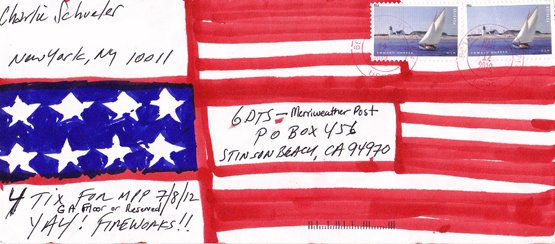 Charlie Schueler
New York, NY 10011
GDTS - Merriweather Post
P O BOX 456
STINSON BEACH, CA 94970
4 TIX FOR MPP 7/8/12
GA Floor or Reserved
YAY! FIREWORKS!!